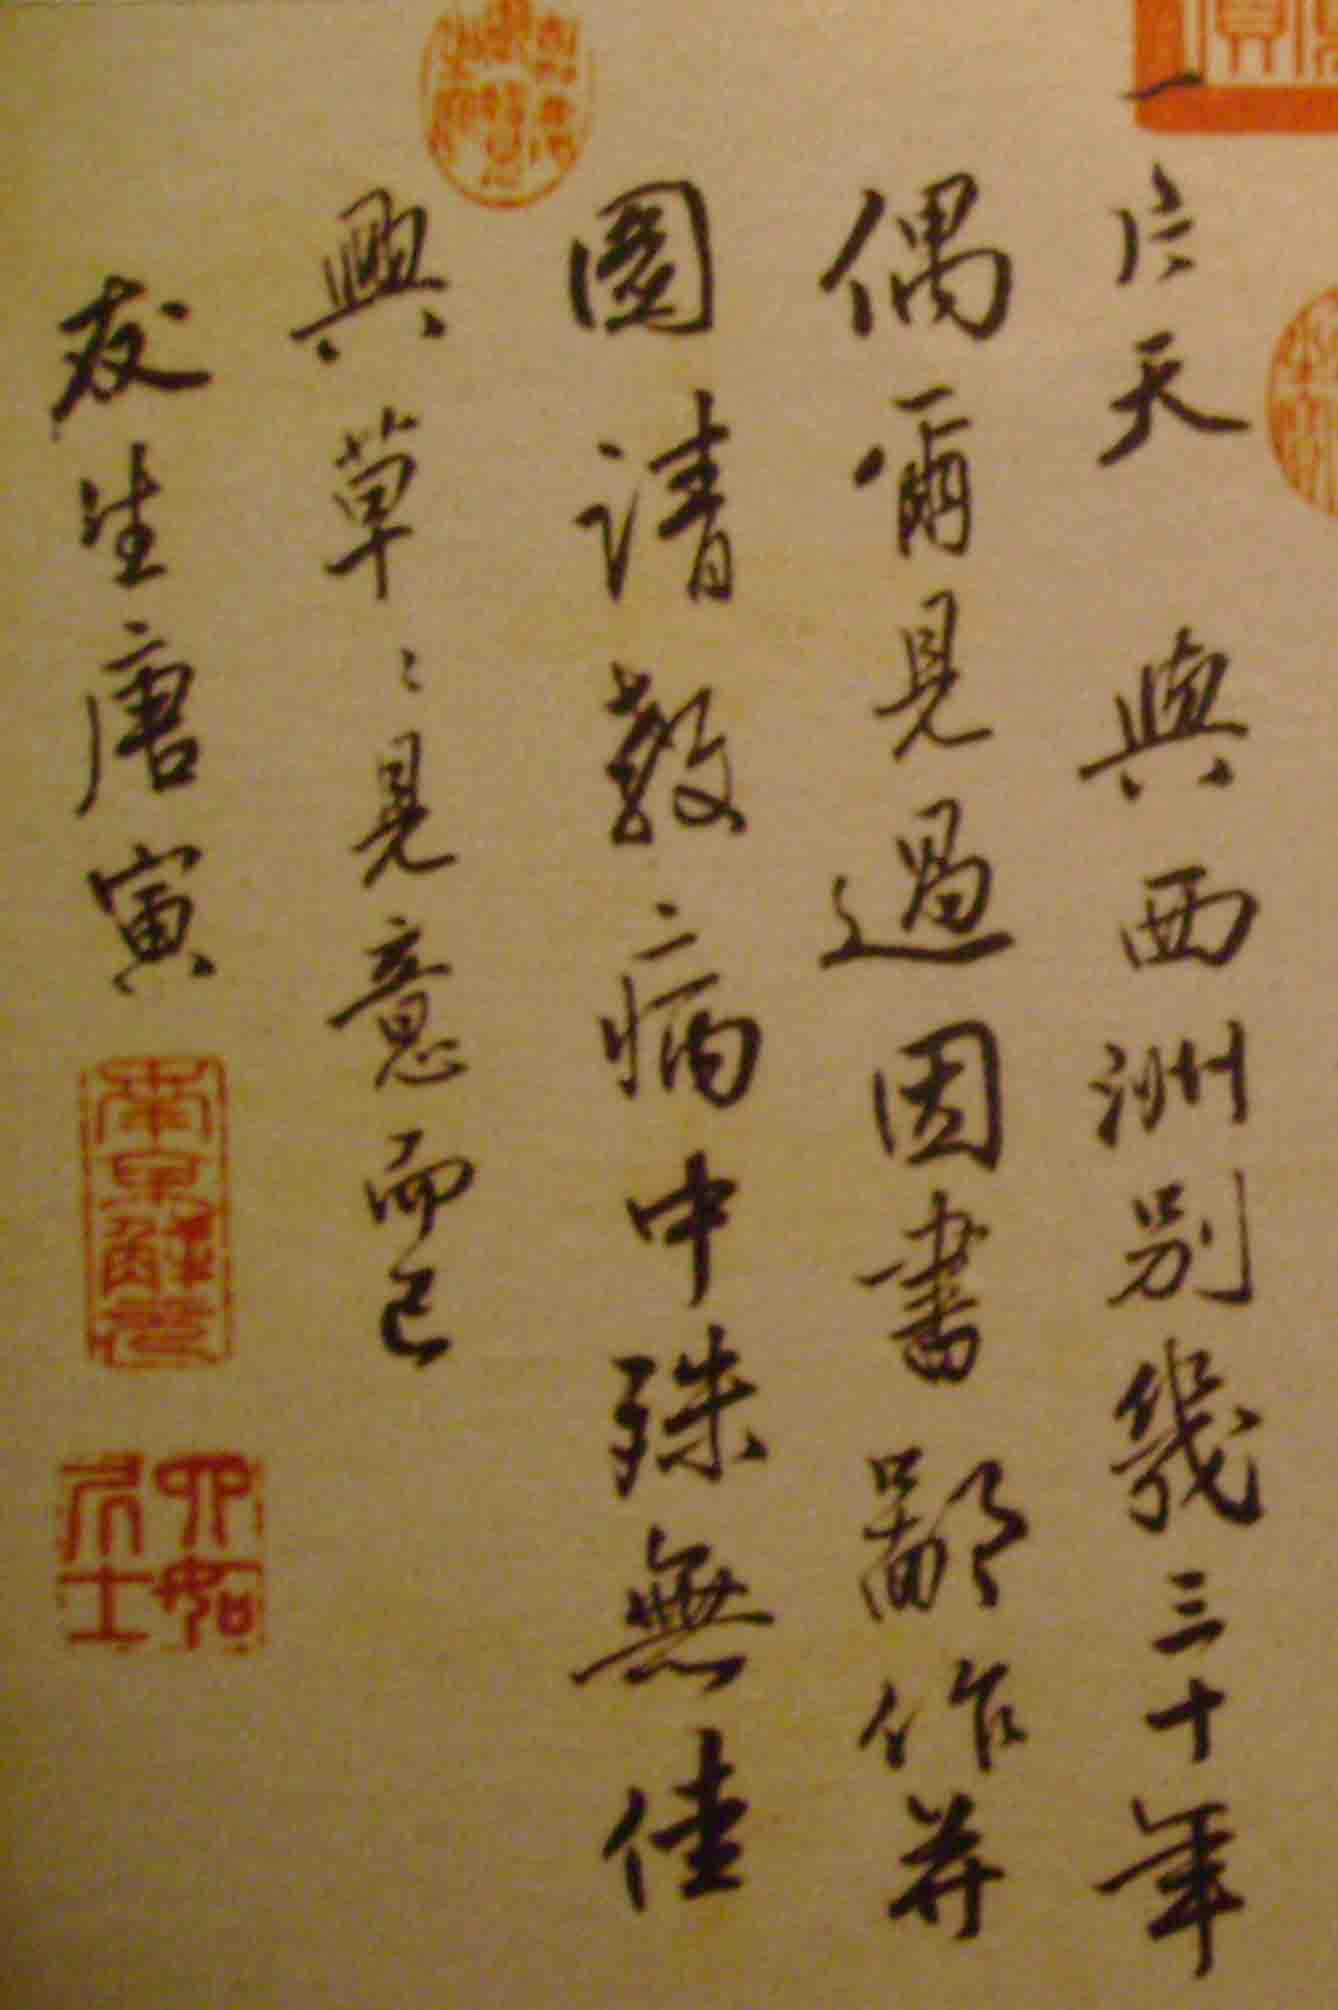 一片天 與西洲別幾三十年
偶爾見過因書鄙作并
圖請教病中殊無佳
興草〻見意而已
友生唐寅
南京解元
六如居士